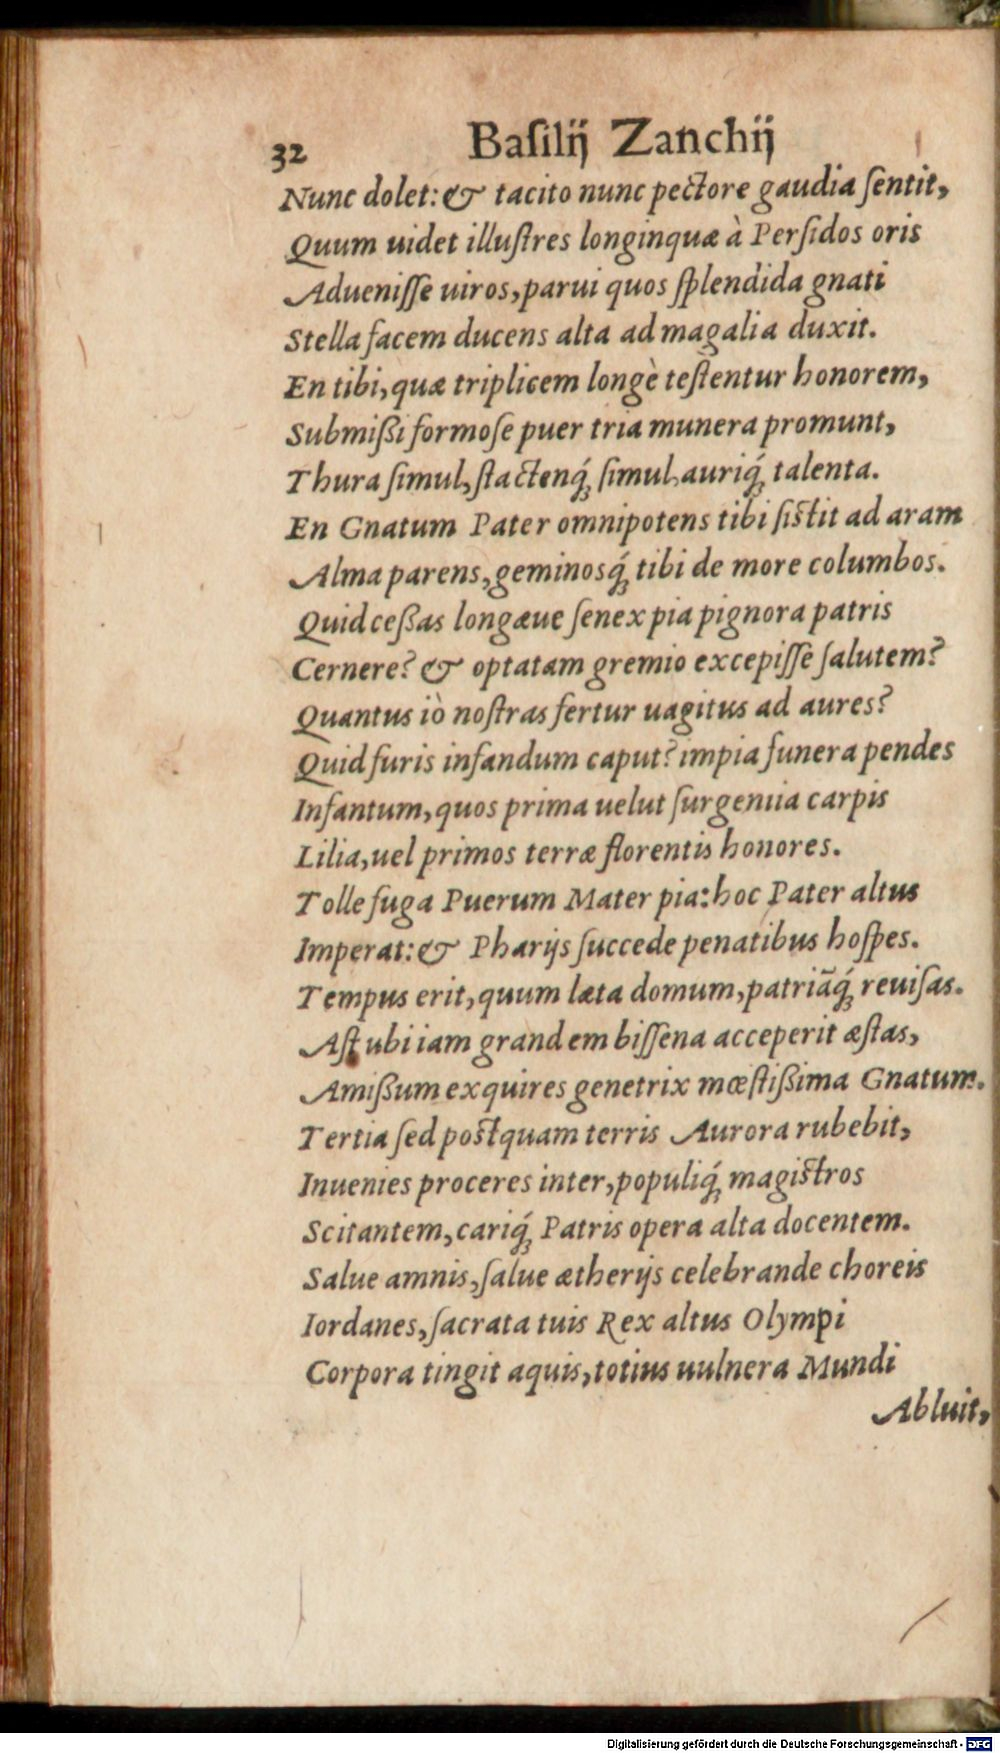 32 Baſilij Zanchij
Nunc dolet: & tacito nunc pectore gaudia ſentit,
Quum uidet illuſtres longinquæ à Perſidos oris
Adueniſſe uiros, parui quos ſplendida gnati
Stella facem ducens alta ad magalia duxit.
En tibi, quæ triplicem longè teſtentur honorem,
Submißi formoſe puer tria munera promunt,
Thura ſimul, ſtactenq́; ſimul, auriq́; talenta.
En Gnatum Pater omnipotens tibi ſiſtit ad aram
Alma parens, geminosq́; tibi de more columbos.
Quid ceßas longæue ſenex pia pignora patris
Cernere? & optatam gremio excepiſſe ſalutem?
Quantus iò noſtras fertur uagitus ad aures?
Quid furis infandum caput? impia funera pendes
Infantum, quos prima uelut ſurgentia carpis
Lilia, uel primos terræ florentis honores.
Tolle fuga Puerum Mater pia: hoc Pater altus
Imperat: & Pharijs ſuccede penatibus hoſpes.
Tempus erit, quum læta domum, patriãq́; reuiſas.
Aſt ubi iam grandem biſſena acceperit æſtas,
Amißum exquires genetrix mœſtißima Gnatum.
Tertia ſed poſtquam terris Aurora rubebit,
Inuenies proceres inter, populiq́; magiſtros
Scitantem, cariq́; Patris opera alta docentem.
Salue amnis, ſalue ætherijs celebrande choreis
Iordanes, ſacrata tuis Rex altus Olympi
Corpora tingit aquis, totius uulnera Mundi
Abluit,
Digitalisierung gefördert durch die Deutsche Forschungsgemeinschaft - DFG